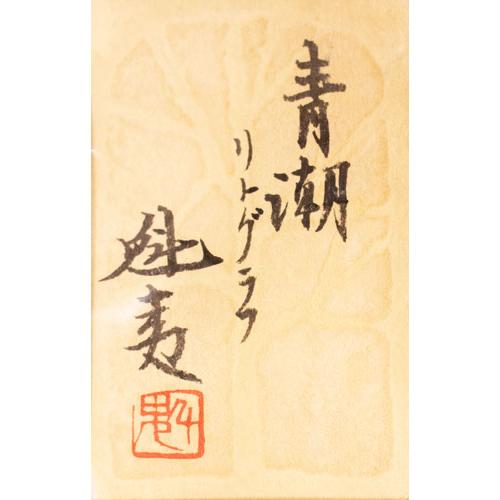 青潮
リトグラフ
魁夷
魁